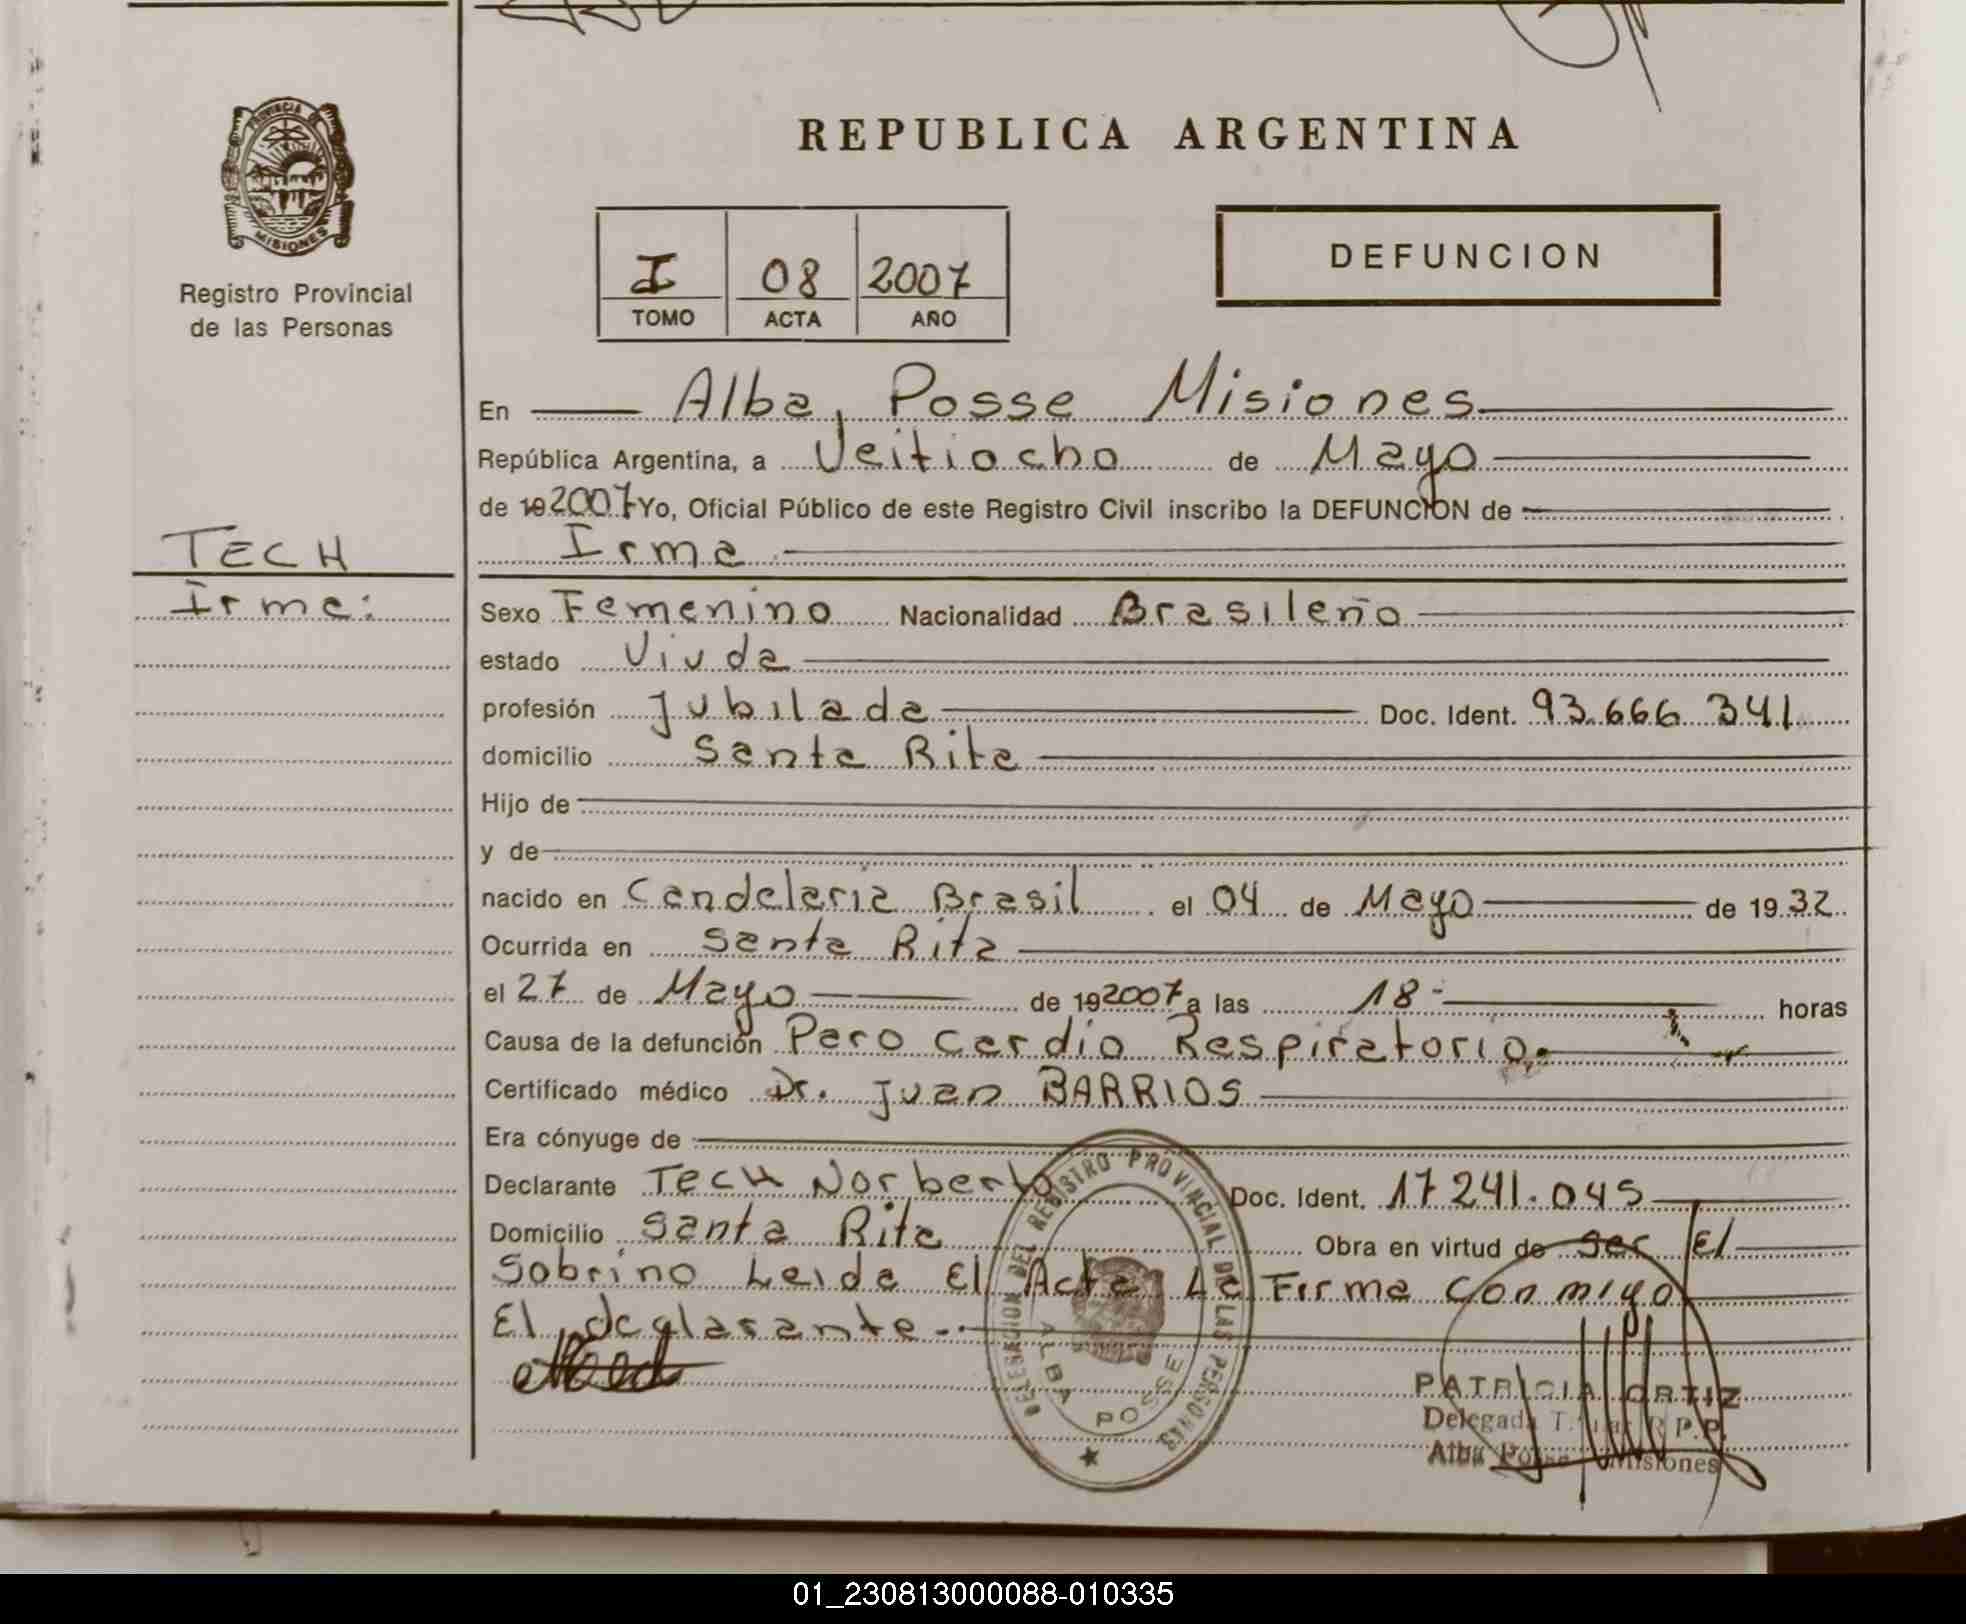 PROVINCIA DE
MISIONES
Registro Provincial
de las Personas
REPUBLICA ARGENTINA
I 08 2007
TOMO ACTA AÑO
DEFUNCION
En Alba Posse Misiones
República Argentina, a Veitiocho de Mayo
de 192007 Yo, Oficial Público de este Registro Civil inscribo la DEFUNCION de
TECH
Irma
Irma:
Sexo Femenino Nacionalidad Brasileño
estado Viuda
profesión Jubilada Doc. Ident. 93.666 341
domicilio Santa Rita
Hijo de
y de
nacido en Candelaria Brasil el 04 de Mayo de 1932
Ocurrida en Santa Rita
el 27 de Mayo de 192007 a las 18- horas
Causa de la defunción Paro Cardio Respiratorio.
Certificado médico Dr. Juan BARRIOS
Era cónyuge de
Declarante TECH Norberto Doc. Ident. 17 241.045
Domicilio Santa Rita Obra en virtud de ser El
Sobrino Leida El Acta La Firma Conmigo
El declarante.-
DELEGACION DEL REGISTRO PROVINCIAL DE LAS PERSONAS
ALBA POSSE
PATRICIA ORTIZ
Delegada R.P.P.
Alba Posse Misiones
01_230813000088-010335